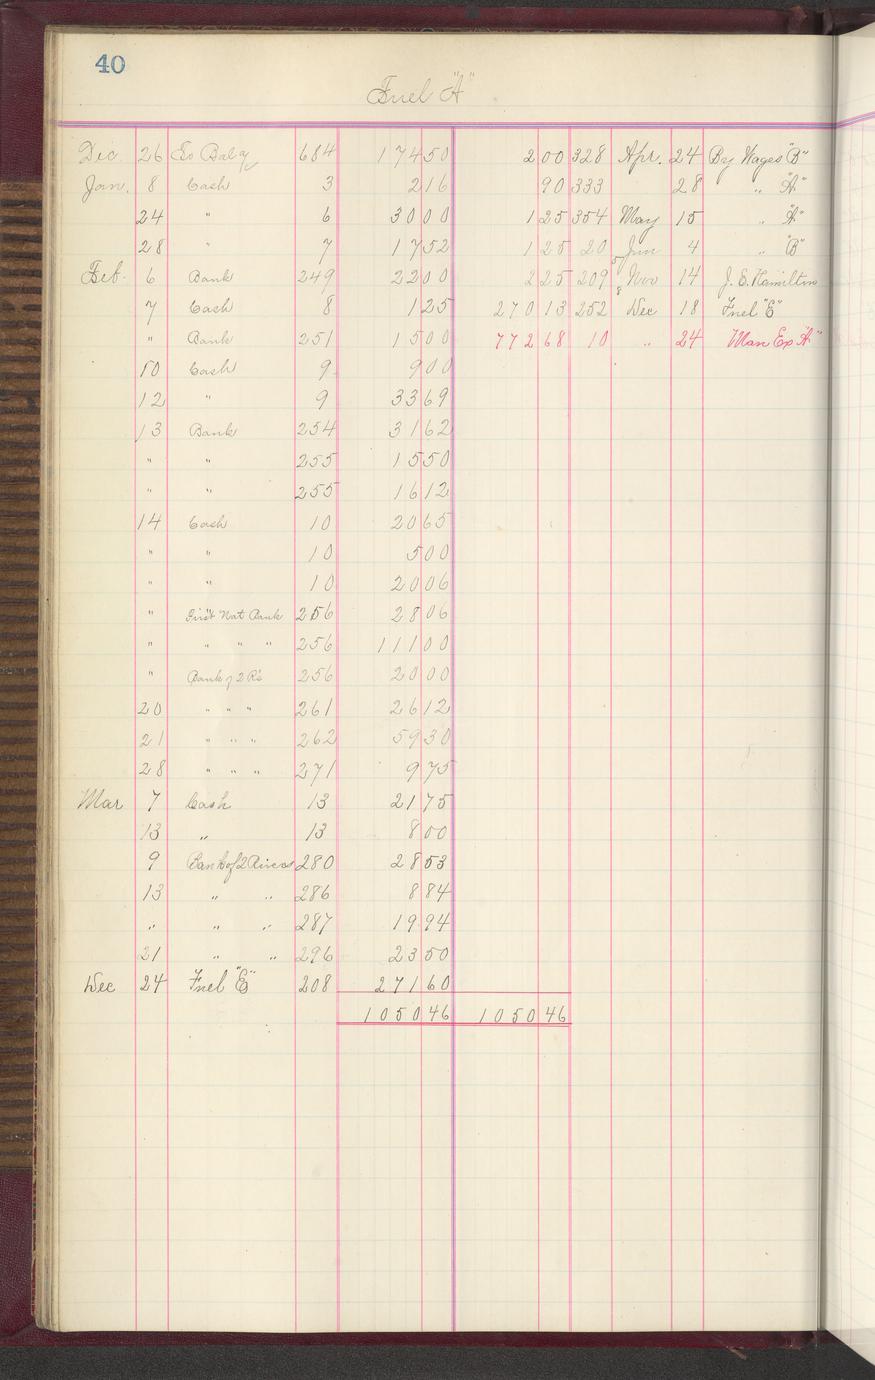 40
Fuel "A"
Dec. 26 To Bal 684 174 50 2 00 328 Apr. 24 By Wages "B"
Jan. 8 Cash 3 2 16 90 333 28 " "A"
24 " 6 30 00 1 25 354 May 15 " "A"
28 " 7 17 52 1 25 20 Jun 4 " "B"
Feb. 6 Bank 249 22 00 2 25 209 Nov 14 J. E. Hamilton
7 Cash 8 1 25 270 13 252 Dec 18 Fuel "E"
" Bank 251 15 00 772 68 10 " 24 Man Ex "A"
10 Cash 9 9 00
12 " 9 33 69
13 Bank 254 31 62
" " 255 15 50
" " 255 16 12
14 Cash 10 20 65
" " 10 5 00
" " 10 20 06
" First Nat Bank 256 28 06
" " " " 256 111 00
" Bank of 2 R's 256 20 00
20 " " " 261 26 12
21 " " " 262 59 30
28 " " " 271 9 75
Mar 7 Cash 13 21 75
13 " 13 8 00
9 Bank of 2 Rivers 280 28 53
13 " " 286 8 84
" " " 287 19 94
21 " " 296 23 50
Dec 24 Fuel "E" 208 271 60
1050 46 1050 46